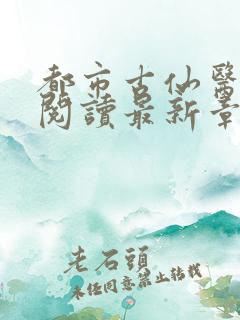 都市古仙醫
閱讀最新章
老石頭
未任同意禁止转载